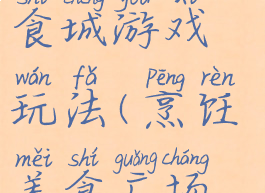 shí chéng yóu xì
食城游戏
wán fǎ Pēng rèn
玩法(烹饪
měi shí guǎng chǎng
美食广场